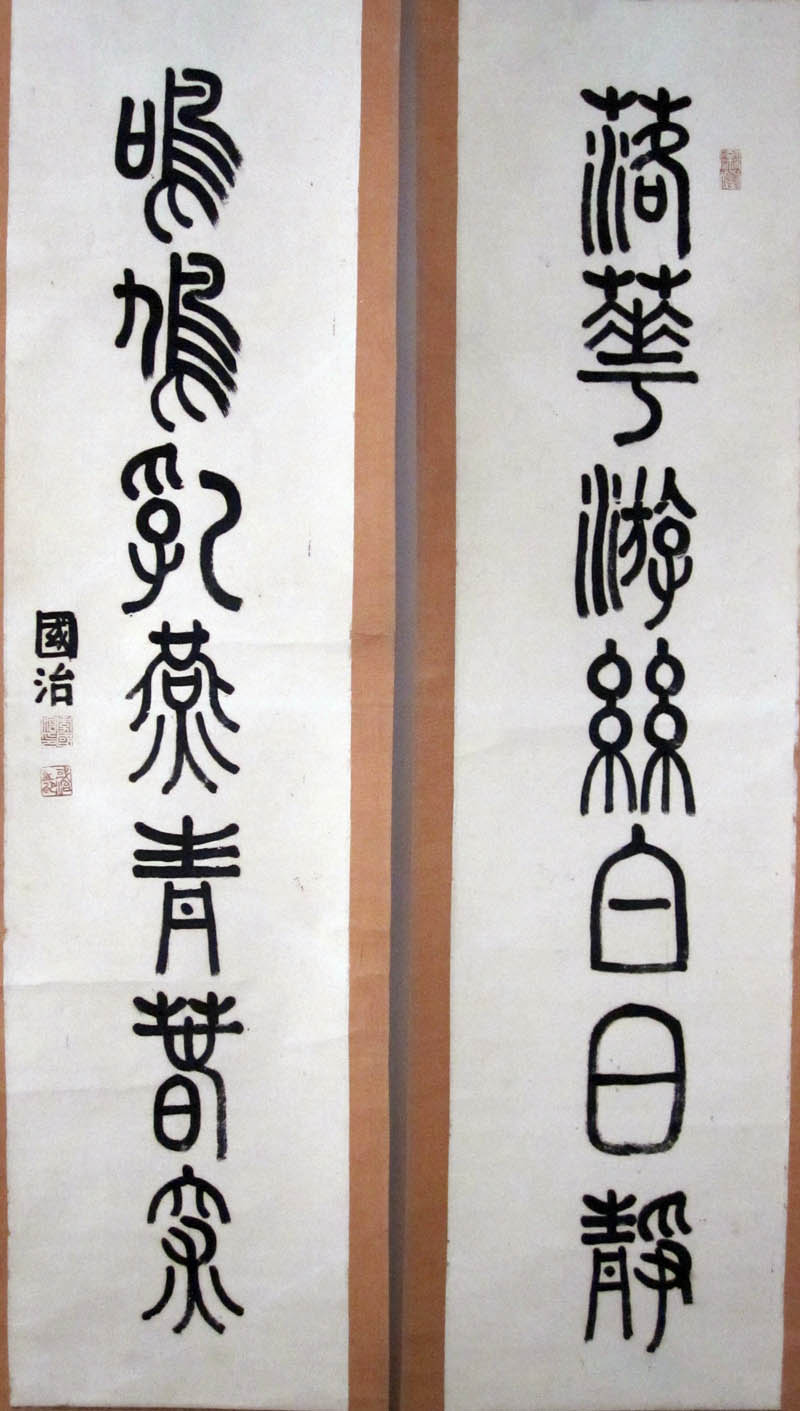 落華游絲白日靜
鳴鳩乳燕青春罙
國治